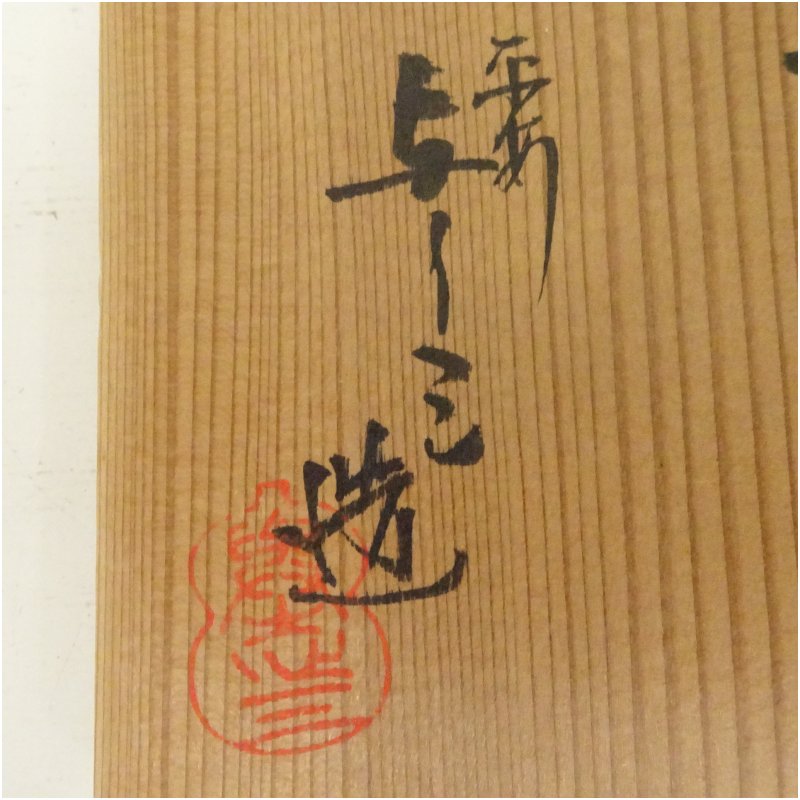 平安
与し三
造